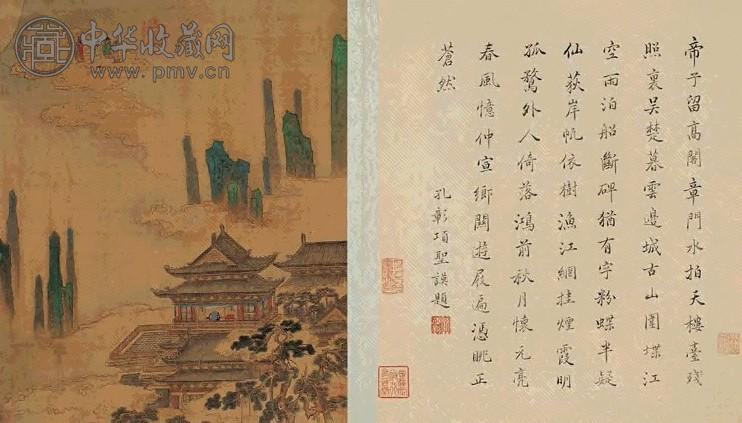 中华收藏网
www.pmv.cn
帝子留高閣章門水拍天樓臺殘
照裏吳楚暮雲邊城古山圍堞江
空雨泊船斷碑猶有字粉蝶半疑
仙荻岸帆依樹漁江網挂煙霞明
孤鶩外人倚落鴻前秋月懷元亮
春風憶仲宣鄉關遊屐遍憑眺正
蒼然
孔彰項聖謨題